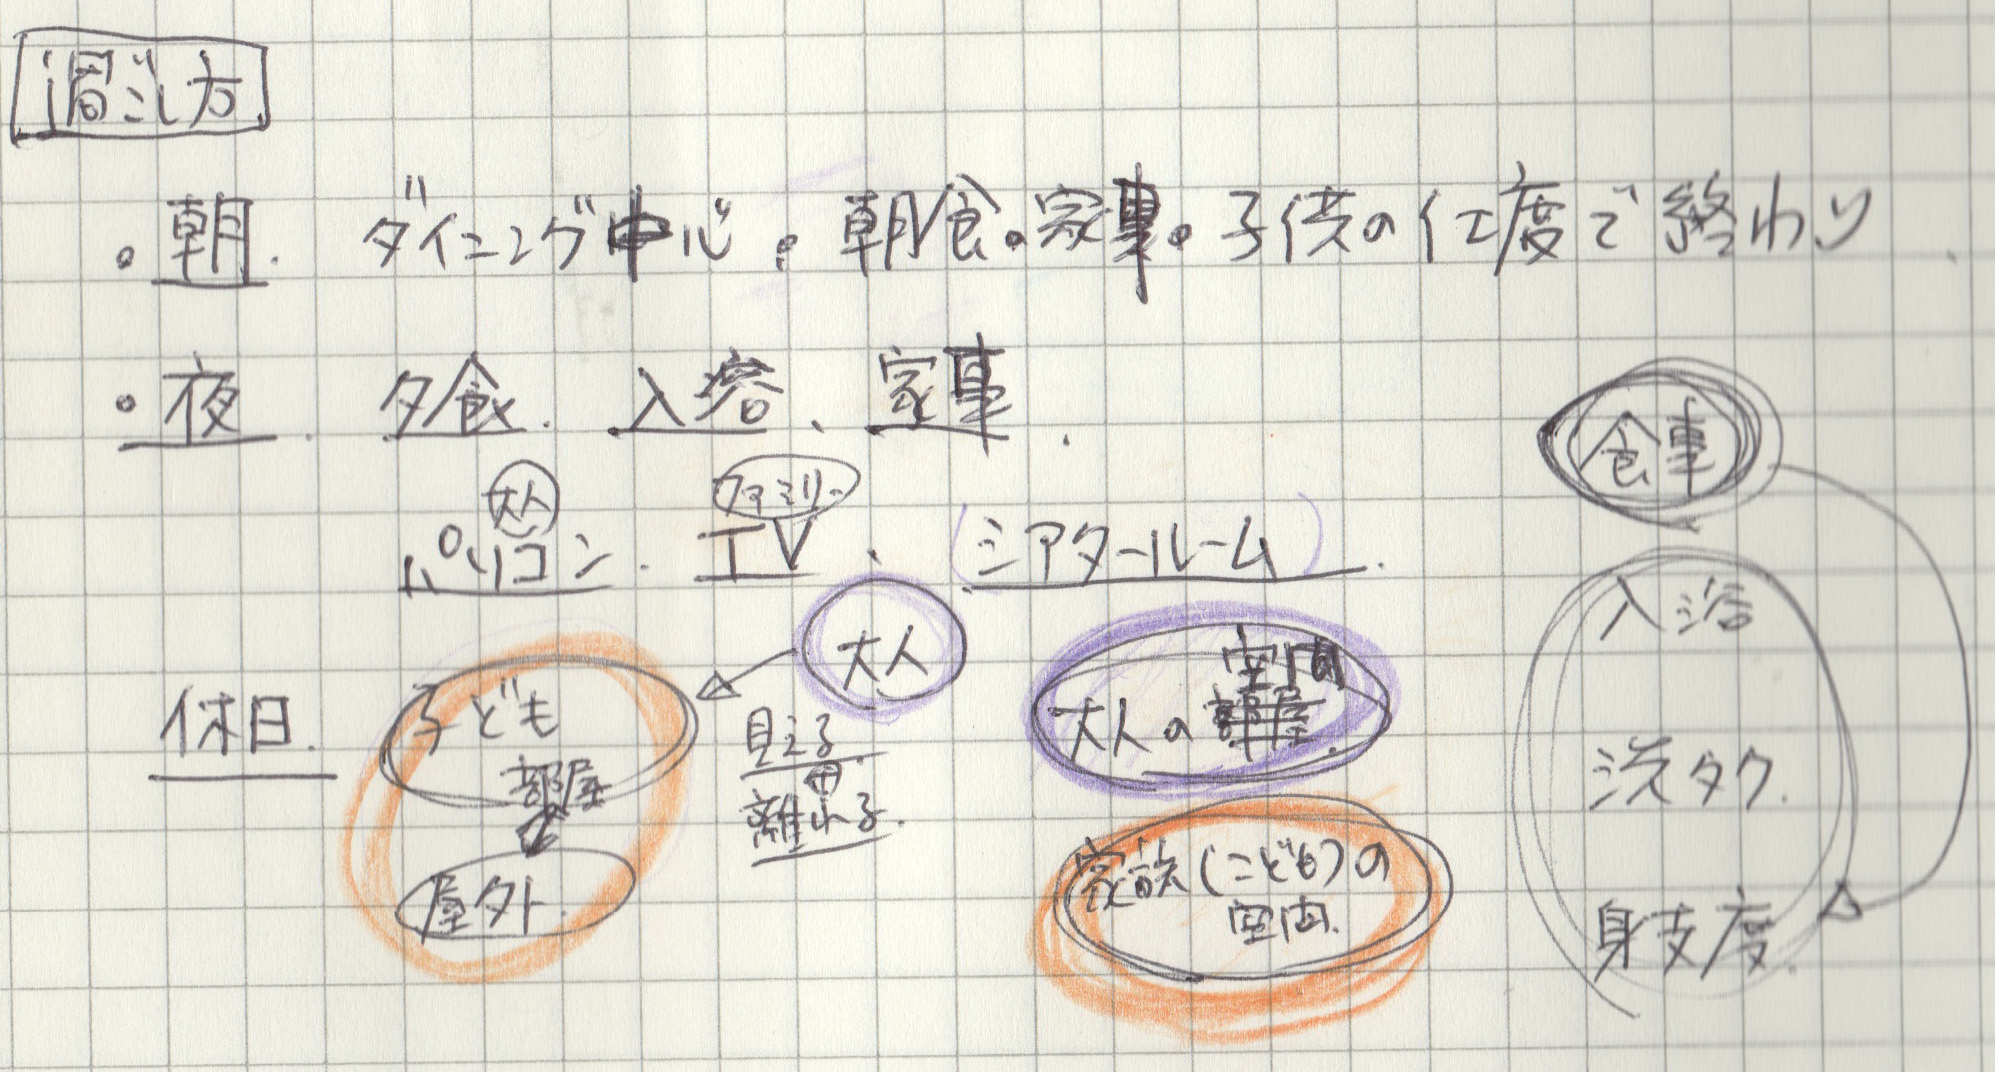 過ごし方
・朝. ダイニング中心。朝食。家事。子供の仕度で終わり
・夜. 夕食. 入浴、家事.
大人 ファミリー
パソコン. TV、(シアタールーム).
休日.
子ども
部屋
屋外.
大人
見える
離れる.
空間
大人の部屋.
家族(こども)の
空間.
食事
入浴
洗タク.
身支度.